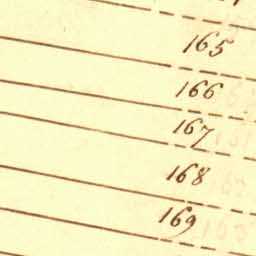 165
166
167
168
169